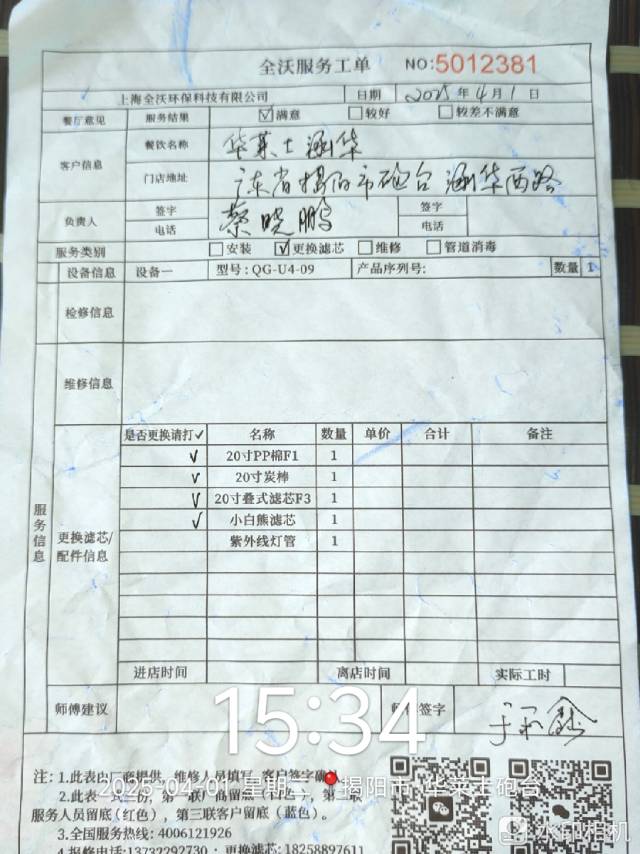 全沃服务工单 NO:5012381
上海全沃环保科技有限公司 日期 2025年4月1日
餐厅意见 服务结果 ☑满意 □较好 □较差不满意
客户信息 餐饮名称 华莱士涵华
门店地址 广东省揭阳市炮台涵华西路
负责人 签字 蔡晓鹏 签字
电话 电话
服务类别 □安装 ☑更换滤芯 □维修 □管道消毒
设备信息 设备一 型号:QG-U4-09 产品序列号: 数量 1
检修信息
维修信息
服务信息
更换滤芯/配件信息
是否更换请打✓ 名称 数量 单价 合计 备注
✓ 20寸PP棉F1 1
✓ 20寸炭棒 1
✓ 20寸叠式滤芯F3 1
✓ 小白熊滤芯 1
紫外线灯管 1
进店时间 离店时间 实际工时
师傅建议 签字
15:34
注: 1.此表由厂商提供, 维修人员填写, 客户签字确认
2025-04-01 星期二 揭阳市·华莱士炮台
2.此表一式三份, 第一联厂商留底(白色), 第二联
服务人员留底(红色), 第三联客户留底(蓝色)。
3.全国服务热线: 4006121926
4.报修电话:13732292730; 更换滤芯: 18258897611
水印相机